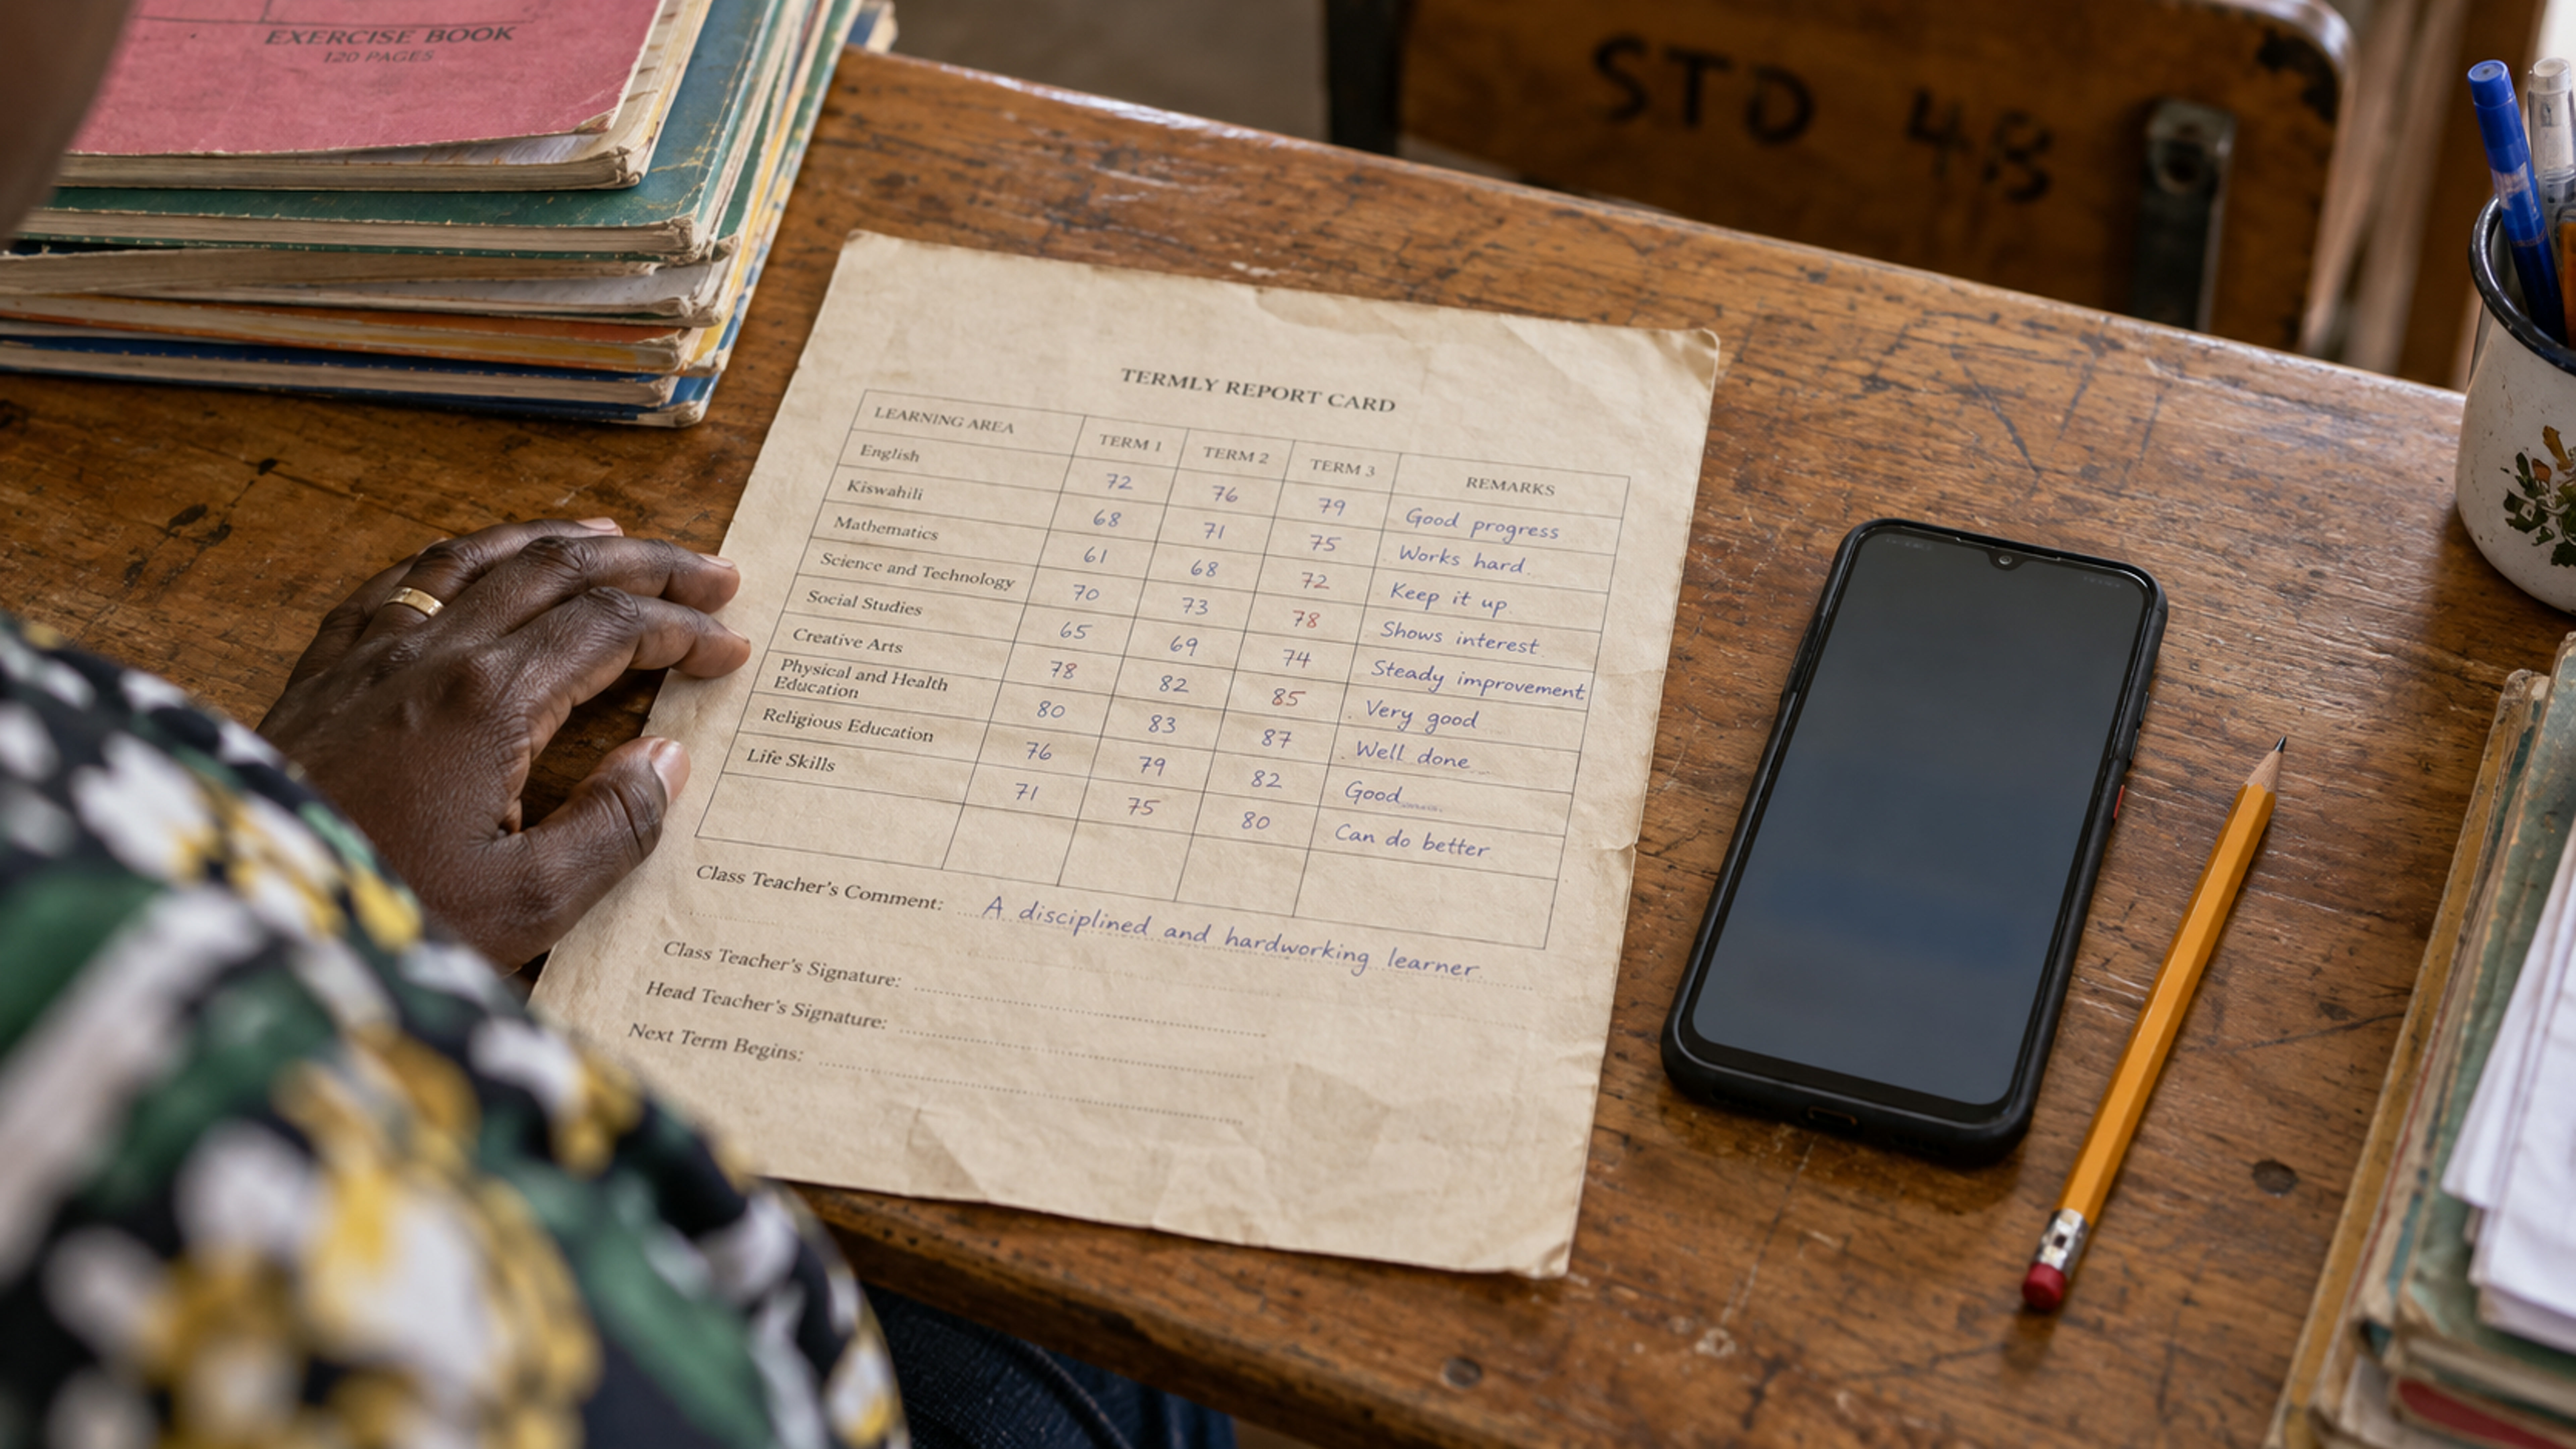 EXERCISE BOOK
120 PAGES
STD 48
TERMLY REPORT CARD
LEARNING AREA TERM 1 TERM 2 TERM 3 REMARKS
English 72 76 79 Good progress
Kiswahili 68 71 75 Works hard
Mathematics 61 68 72 Keep it up
Science and Technology 70 73 78 Shows interest
Social Studies 65 69 74 Steady improvement
Creative Arts 78 82 85 Very good
Physical and Health
Education 80 83 87 Well done
Religious Education 76 79 82 Good
Life Skills 71 75 80 Can do better
Class Teacher's Comment: A disciplined and hardworking learner
Class Teacher's Signature:
Head Teacher's Signature:
Next Term Begins: